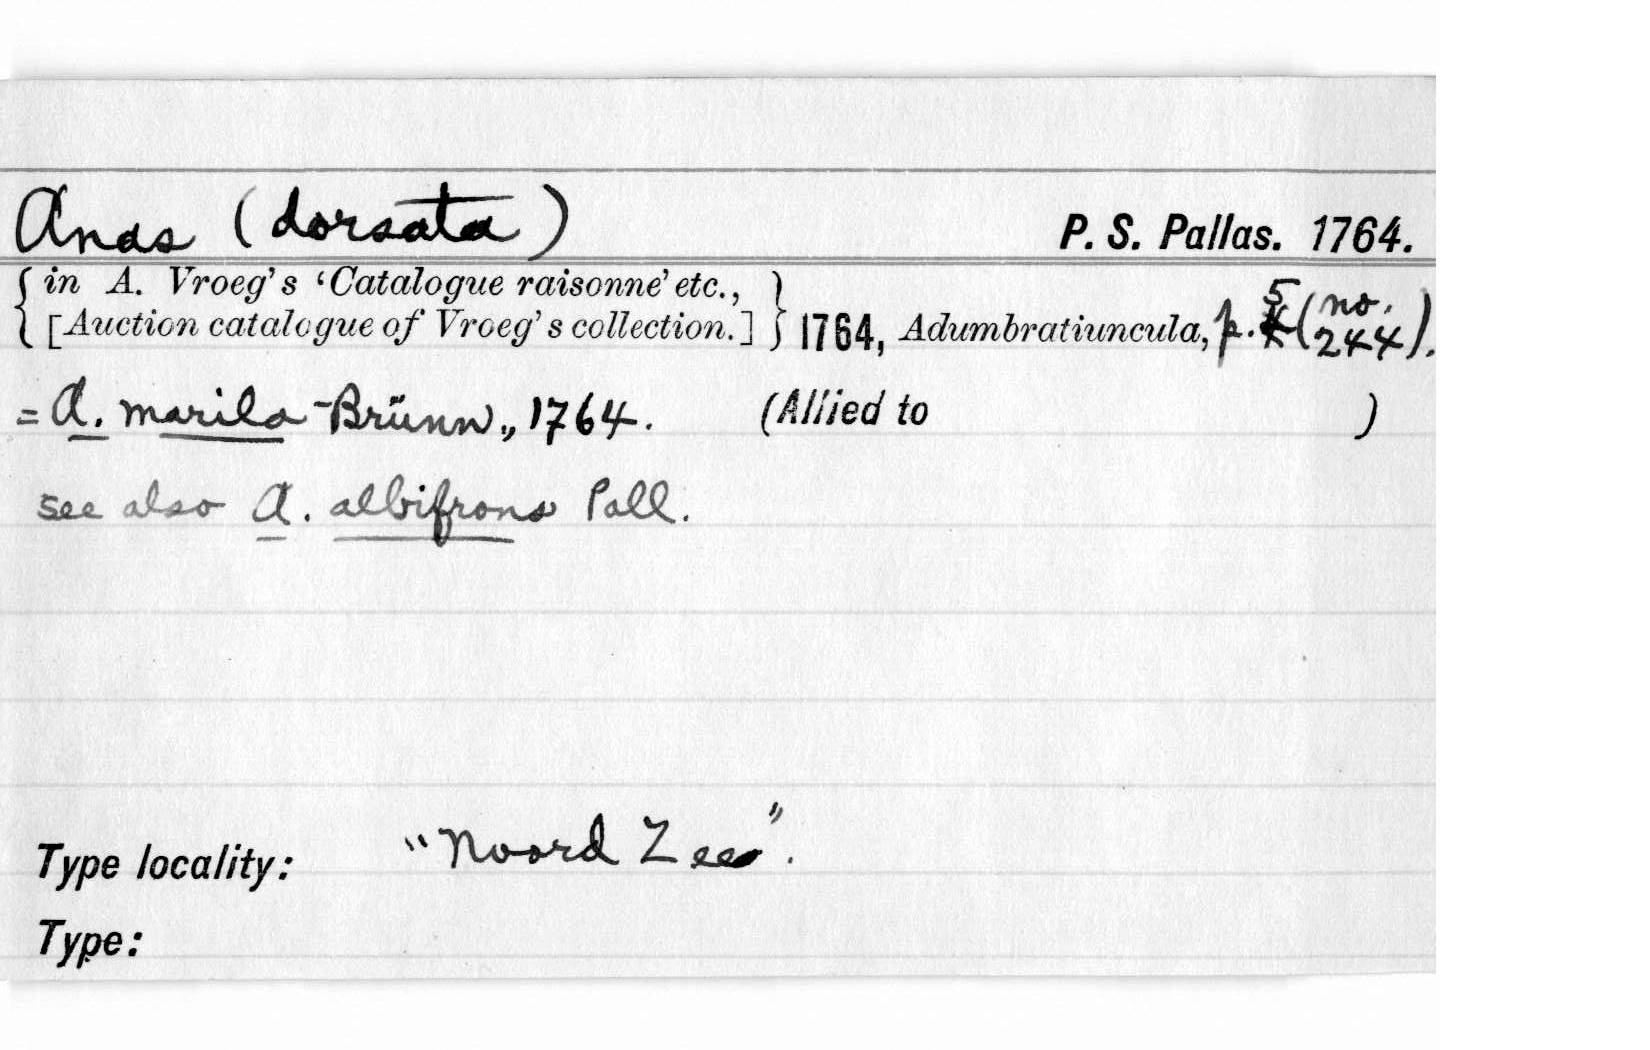 Anas (dorsata) P. S. Pallas. 1764.
{ in A. Vroeg's 'Catalogue raisonne' etc., }
{ [Auction catalogue of Vroeg's collection.] } 1764, Adumbratiuncula, p. 5 (no. 244).
= A. marila Brünn., 1764. (Allied to )
see also A. albifrons Pall.
Type locality: "Noord Zee".
Type: